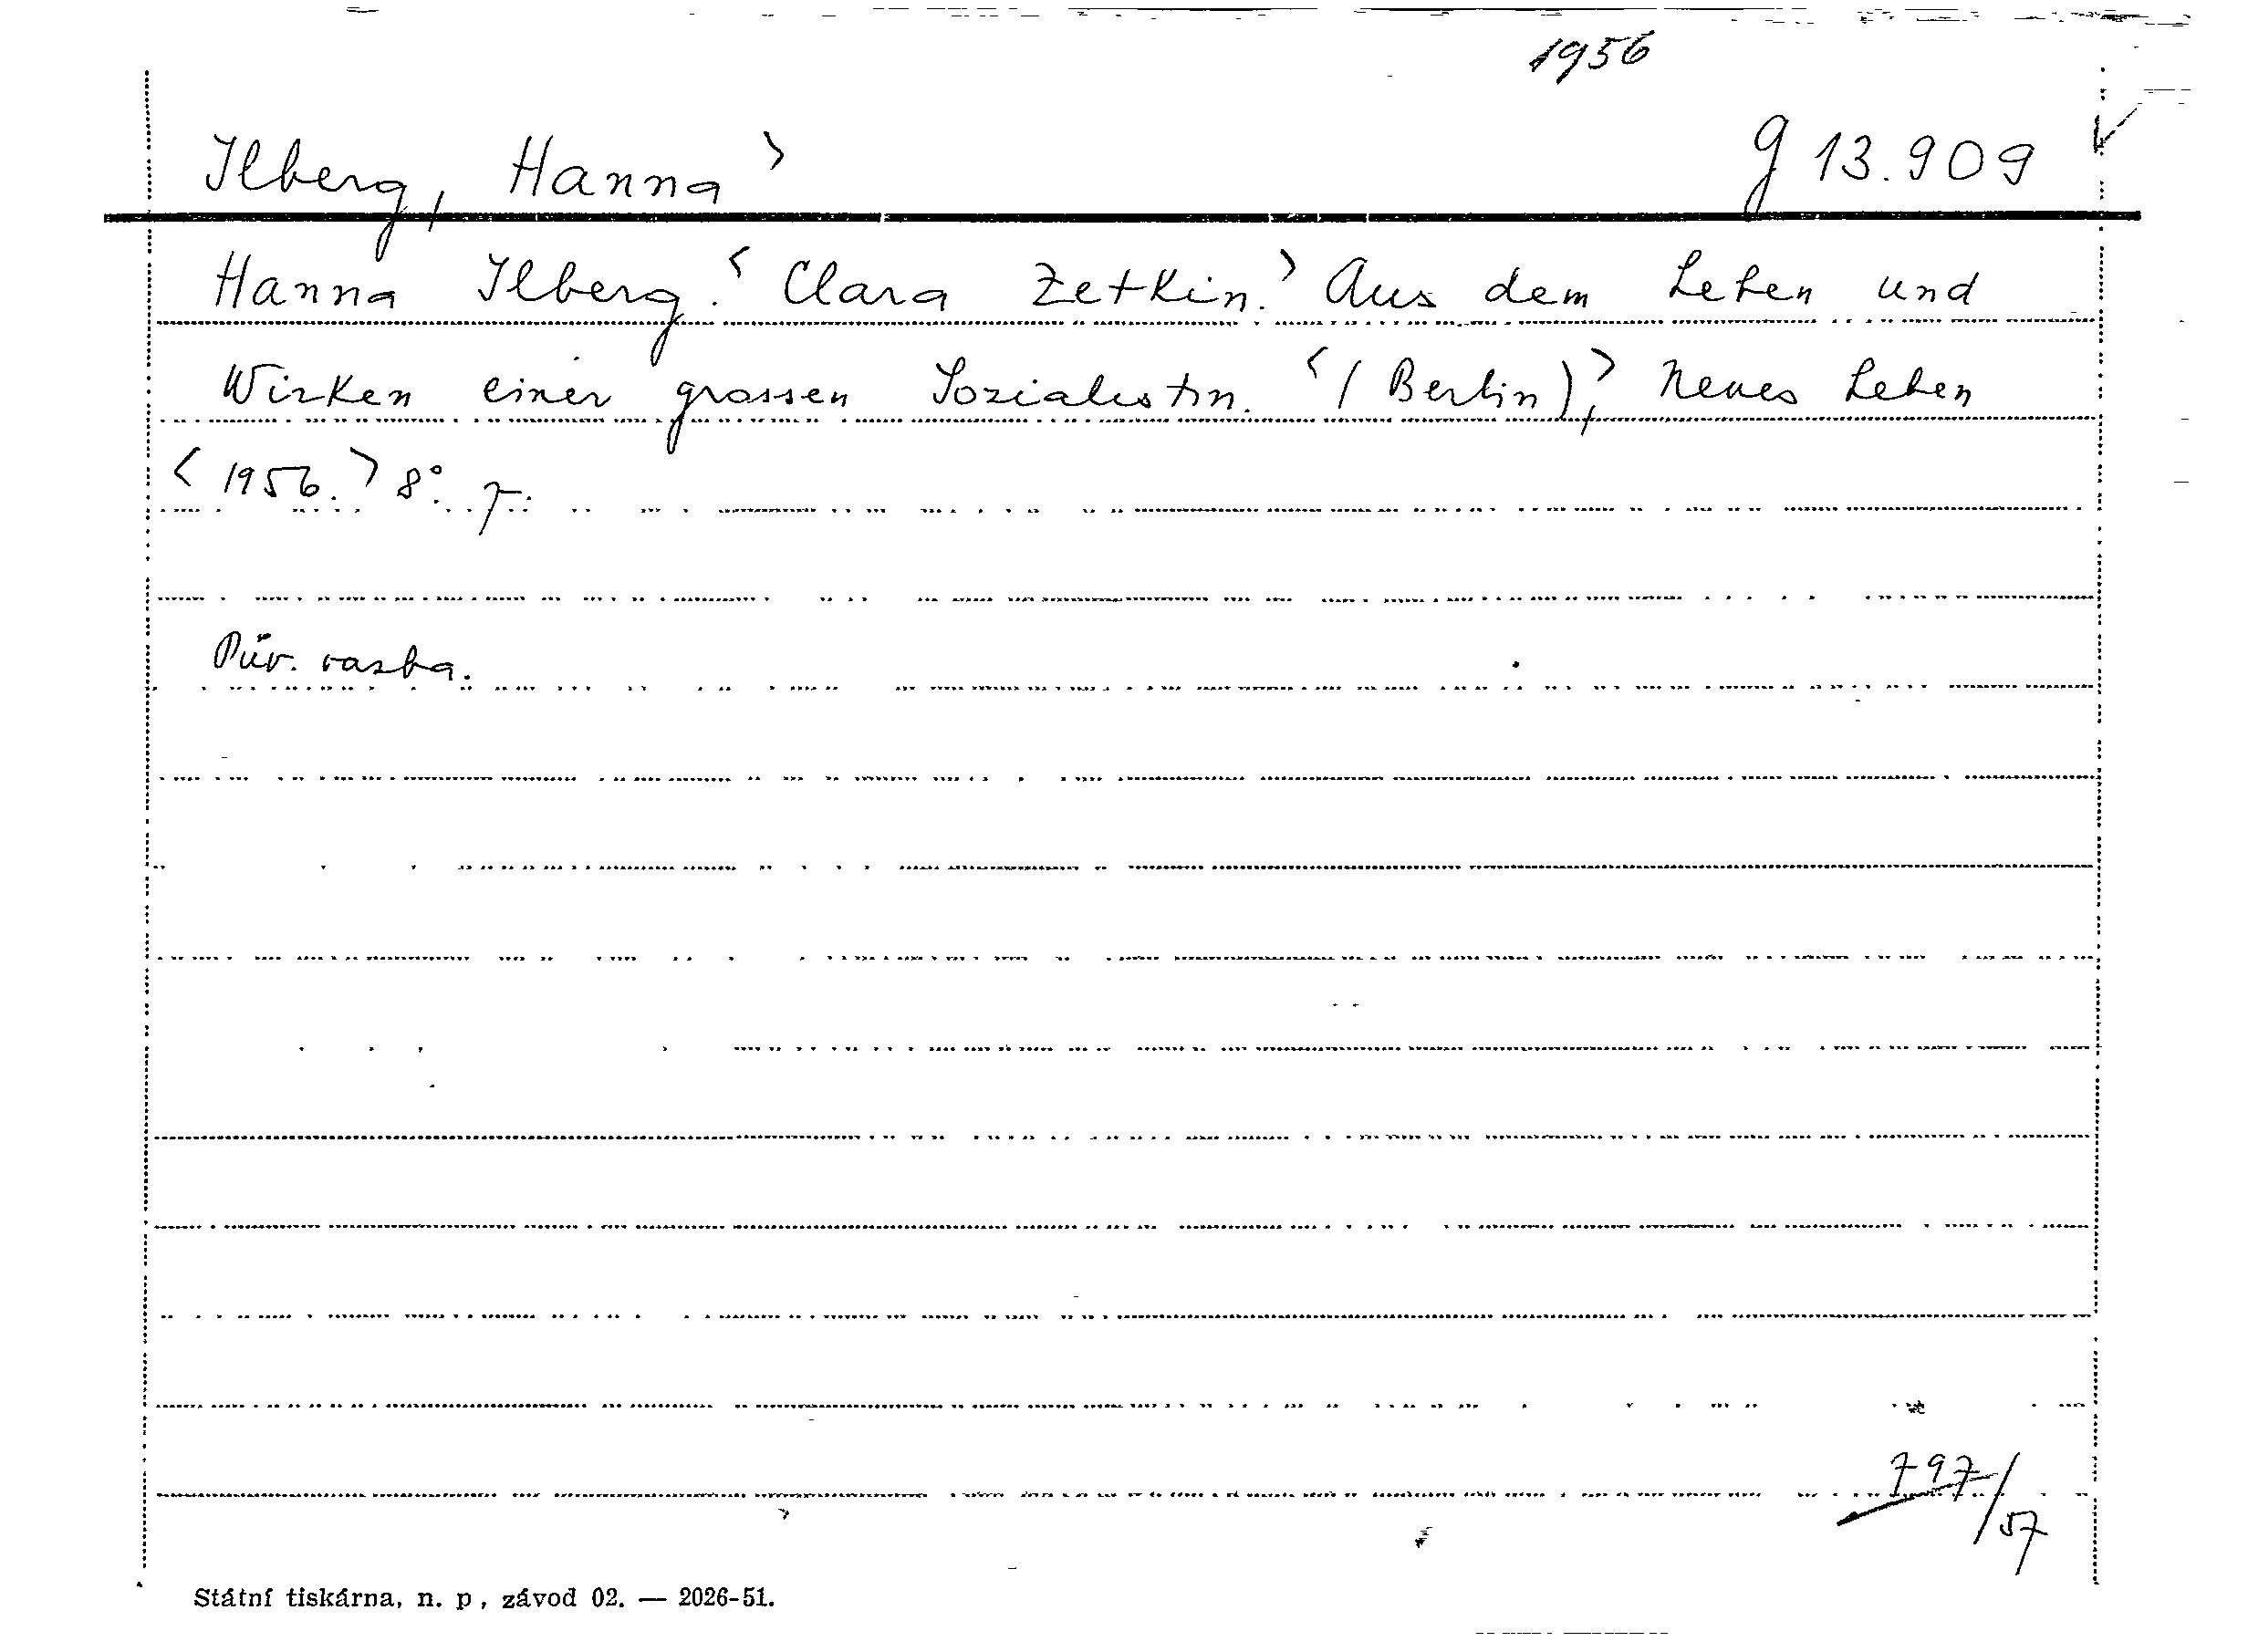 1956
Ilberg, Hanna > g 13.909
Hanna Ilberg. < Clara Zetkin. > Aus dem Leben und
Wirken einer grossen Sozialistin. < (Berlin), > Neues Leben
< 1956. > 8°.
Pův. vazba.
797/57
Státní tiskárna, n. p, závod 02. — 2026-51.